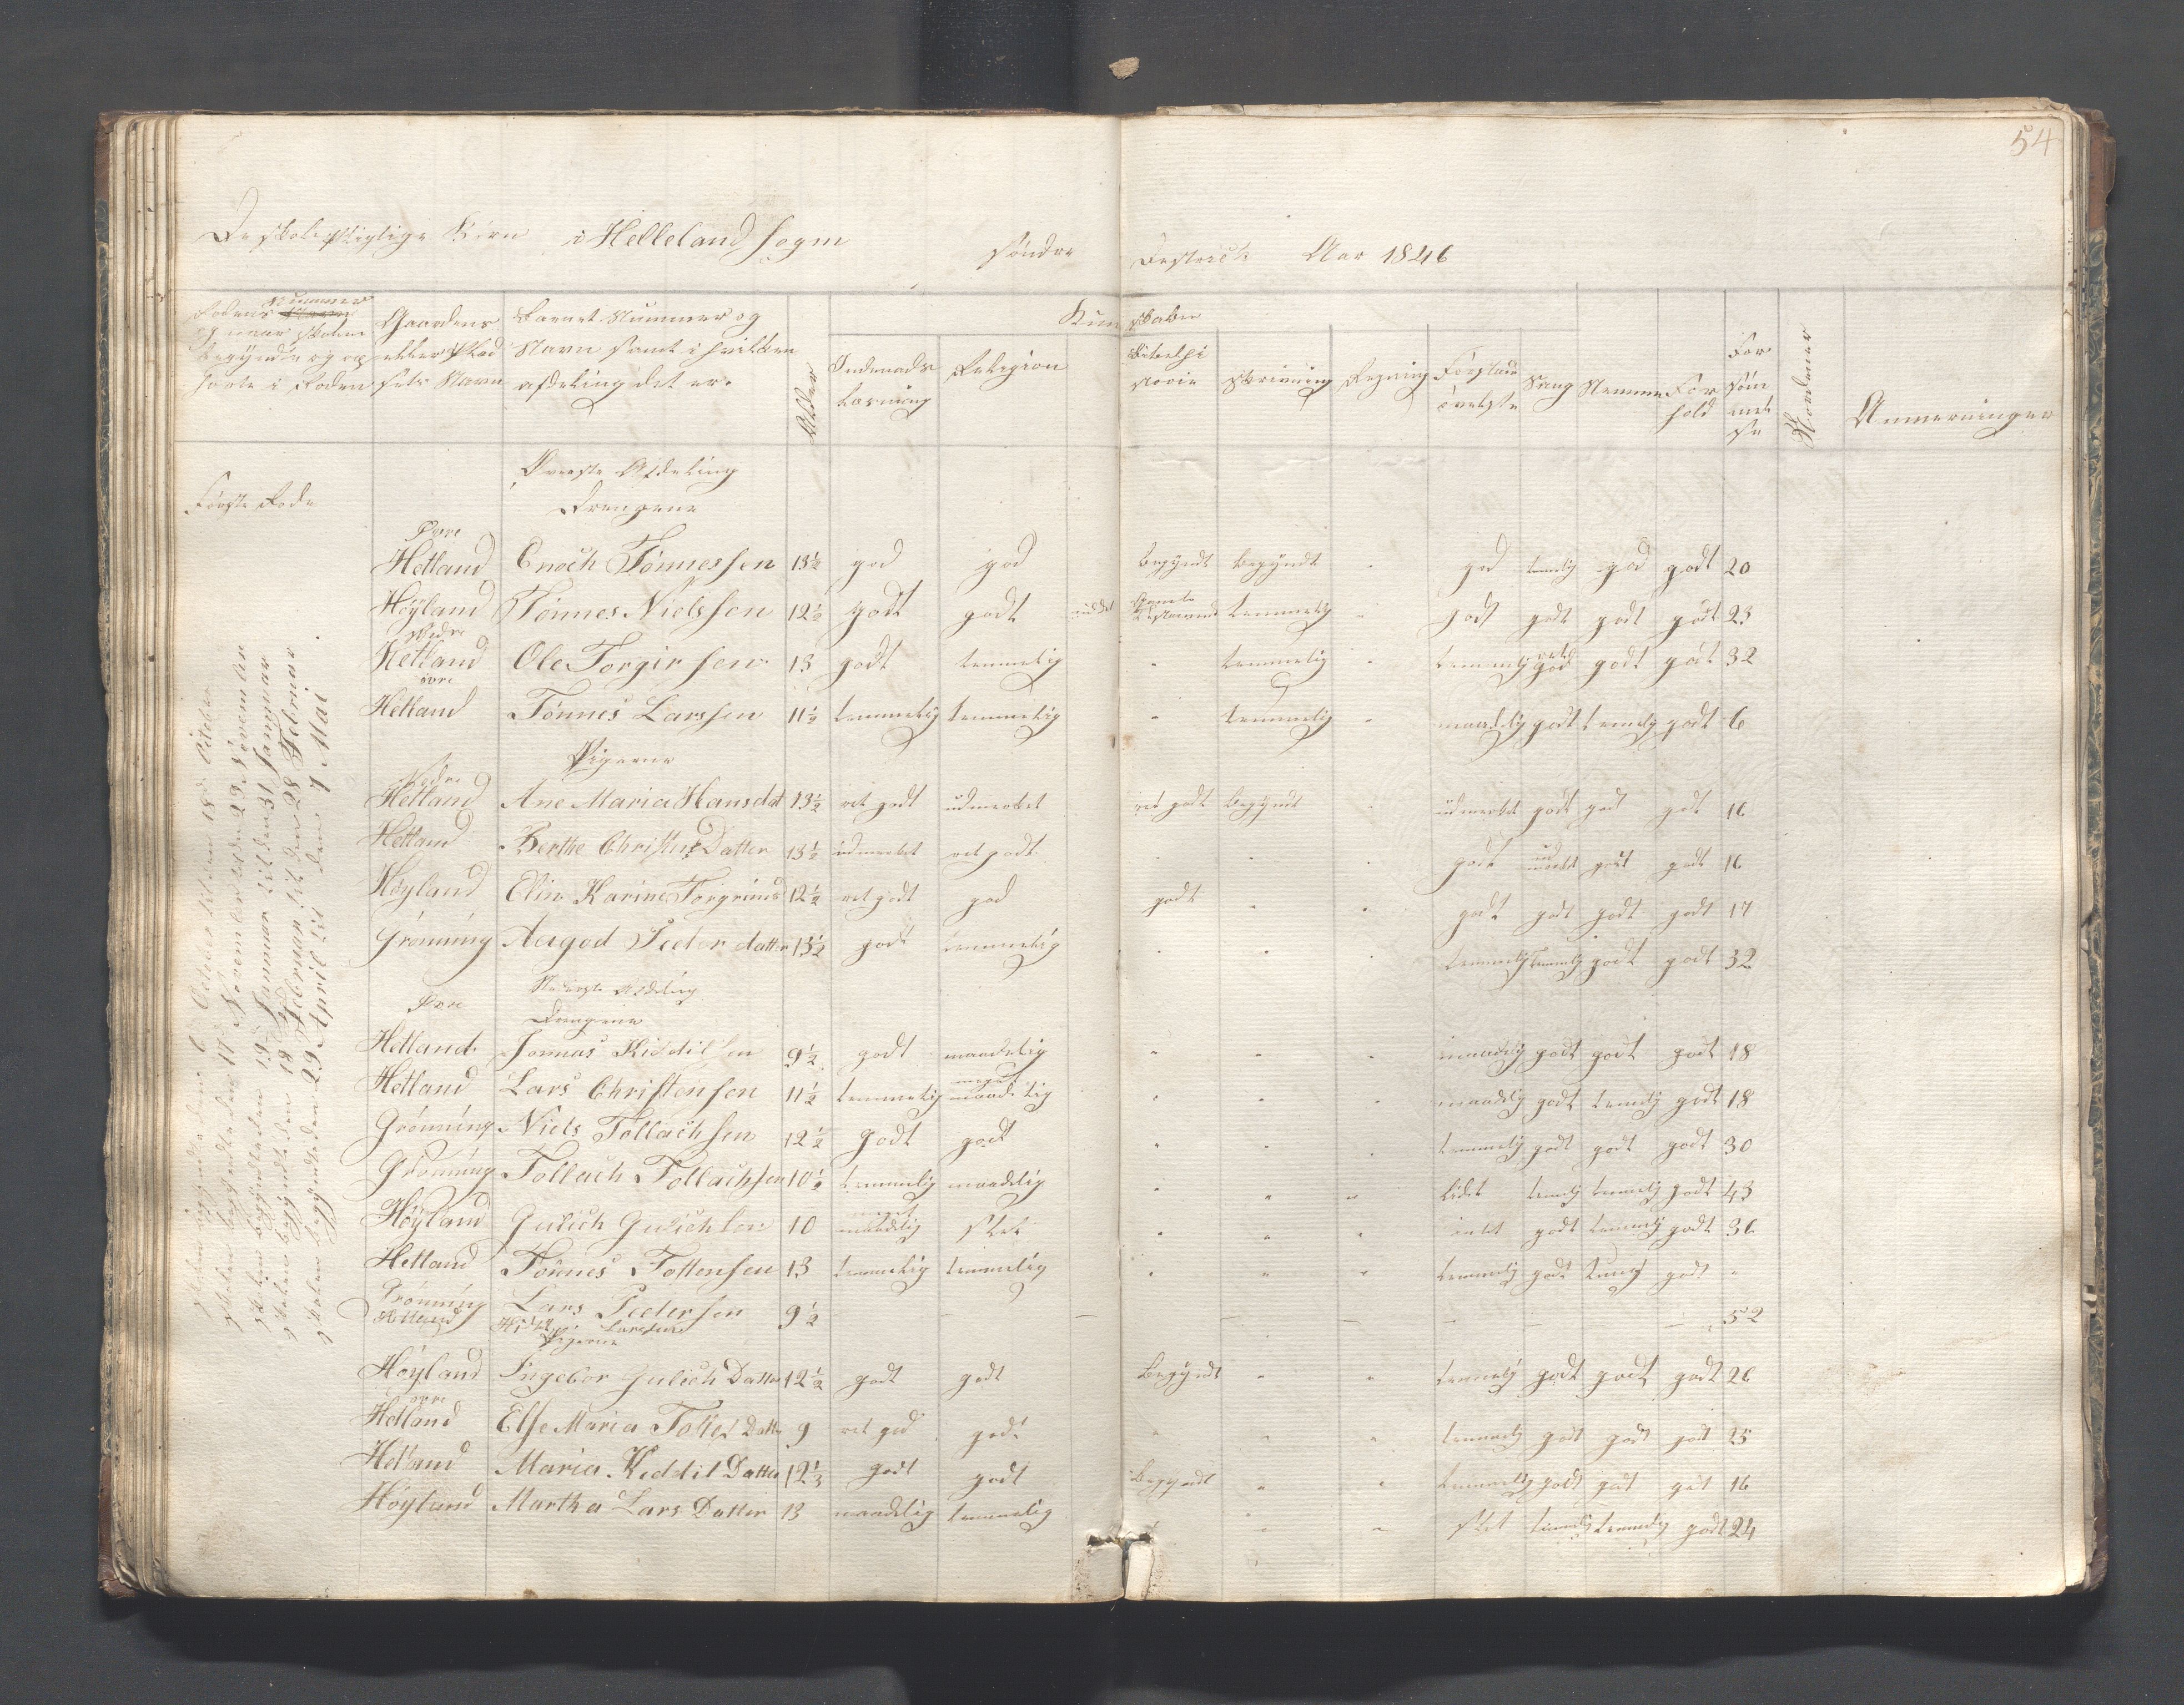 54
De skolepligtige Børn i Helleland Sogn søndre Destrict Aar 1846
Rodens Nummer og naar skolen begyndte og op hørte i Roden
Gaardens eller Pladsets Navn
Barnets Nummer og Navn samt i hvilken afdeling det er.
Alder
Kundskaber
Indenads Læsning
Religion
Bibelhistorie
Skrivning
Regning
Forstands øvelse
Sang
Nemme
Forhold
Forsømmelse
Anmerninger
Første Rode
Øverste Afdeling
Drengene
Øvre
Hetland Enoch Tønnessen 13½ god god begyndt begyndt god temelig god godt 20
Høyland Tønnes Nielssen 12½ godt godt temmelig godt godt godt godt 23
Nedre
Hetland Ole Torgirsen 13 godt temmelig " temmelig temmelig ret god godt godt 32
øvre
Hetland Tønnes Larssen 11½ temmelig temmelig " temmelig maadelig godt temelig godt 6
Pigerne
Nedre
Hetland Ane Maria Hansdat 13½ ret godt udmerket ret godt begyndt udmerket godt godt godt 16
Hetland Berthe Christens Datter 13½ udmerket ret godt godt udmerket godt godt 16
Høyland Elin Karine Torgrims 12½ ret godt god godt godt godt godt godt 17
Grønning Aagod Peder datter 13½ godt temmelig temmelig temmelig godt godt 32
Nederste Afdeling
Øvre
Drengene
Hetland Jonnas Kiddilsen 9½ godt maadelig " " " maadelig godt godt godt 18
Hetland Lars Christensen 11½ temmelig meget maadelig " " " maadelig godt temelig godt 18
Grønning Niels Tollachsen 12½ godt godt " " " temmelig godt godt godt 30
Grønning Tollach Tollachsen 10½ temmelig maadelig " " " lidet temelig temmelig godt 43
Høyland Gulich Gulichsen 10 meget maadelig slet " " " intet godt temmelig godt 36
Hetland Tønnes Tollensen 13 temmelig temmelig " " " temmelig godt temelig godt "
Grønning Lars Pedersen 9½ 52
Hetland Larssen
Pigerne
Høyland Ingebor Gulich Datter 12½ godt godt begyndt " " temmelig godt godt godt 26
øvre
Hetland Else Maria Tolles Datter 9 ret god godt " " " temmelig godt godt godt 25
Hetland Maria Kiddil Datter 12½ godt godt begyndt " " temmelig godt godt godt 16
Høyland Martha Lars Datter 13 maadelig temmelig " " " slet temelig temmelig godt 24
Skolen begyndte den 6 October til den 18 October
skolen begyndte den 17 November til den 29 November
skolen begyndte den 19 Januar til den 31 Januar
skolen begyndte den 18 Februar til den 28 Februar
skolen begyndte den 29 April til den 7 Mai